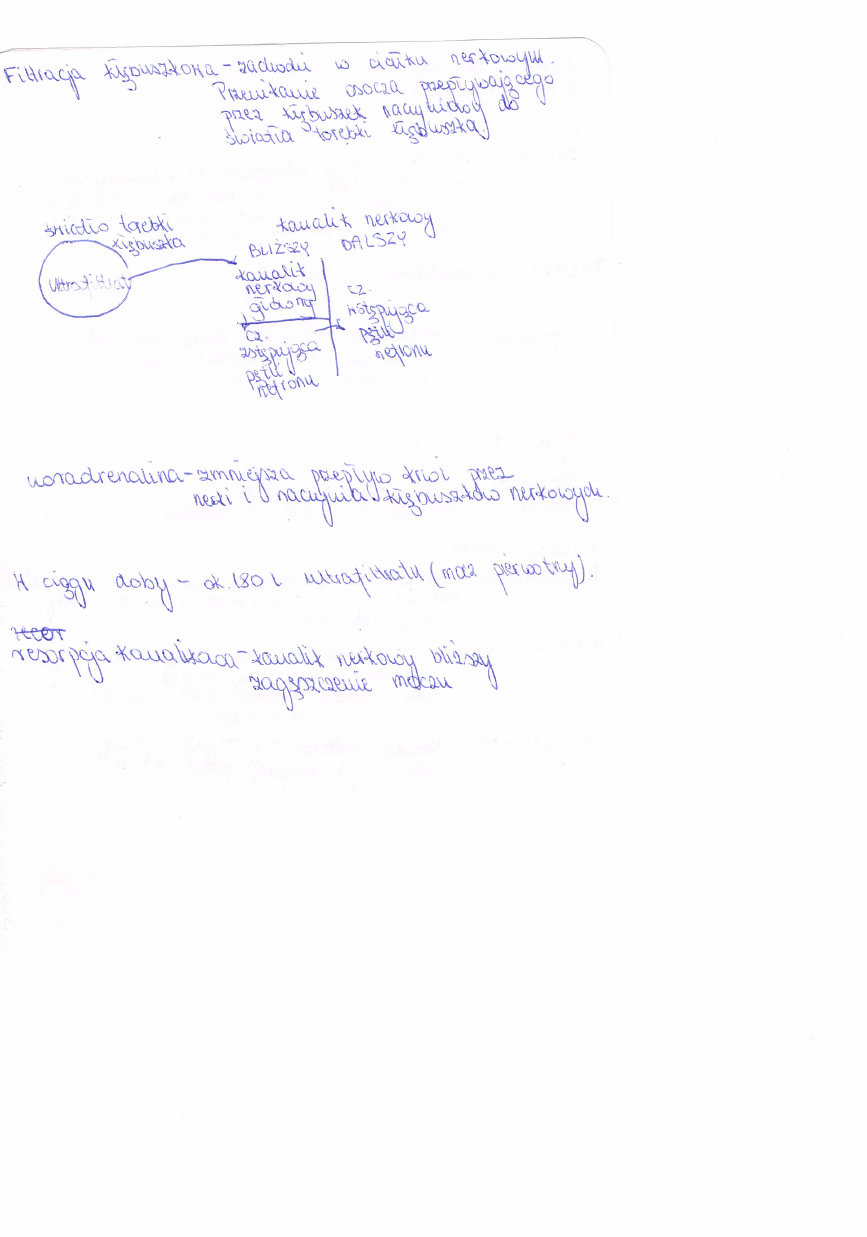 Filtracja kłębuszkowa - zachodzi w ciałku nerkowym.
Przenikanie osocza przepływającego
przez kłębuszek naczyniowy do
światła torebki kłębuszka.
światło torebki
kłębuszka
ultrafiltrat
kanalik nerkowy
BLIŻSZY DALSZY
kanalik
nerkowy
główny
cz.
zstępująca
pętli
nefronu
cz.
wstępująca
pętli
nefronu
noradrenalina - zmniejsza przepływ krwi przez
nerki i naczynia kłębuszków nerkowych.
W ciągu doby - ok. 180 l ultrafiltratu (mocz pierwotny).
resorpcja kanalikowa - kanalik nerkowy bliższy
zagęszczenie moczu